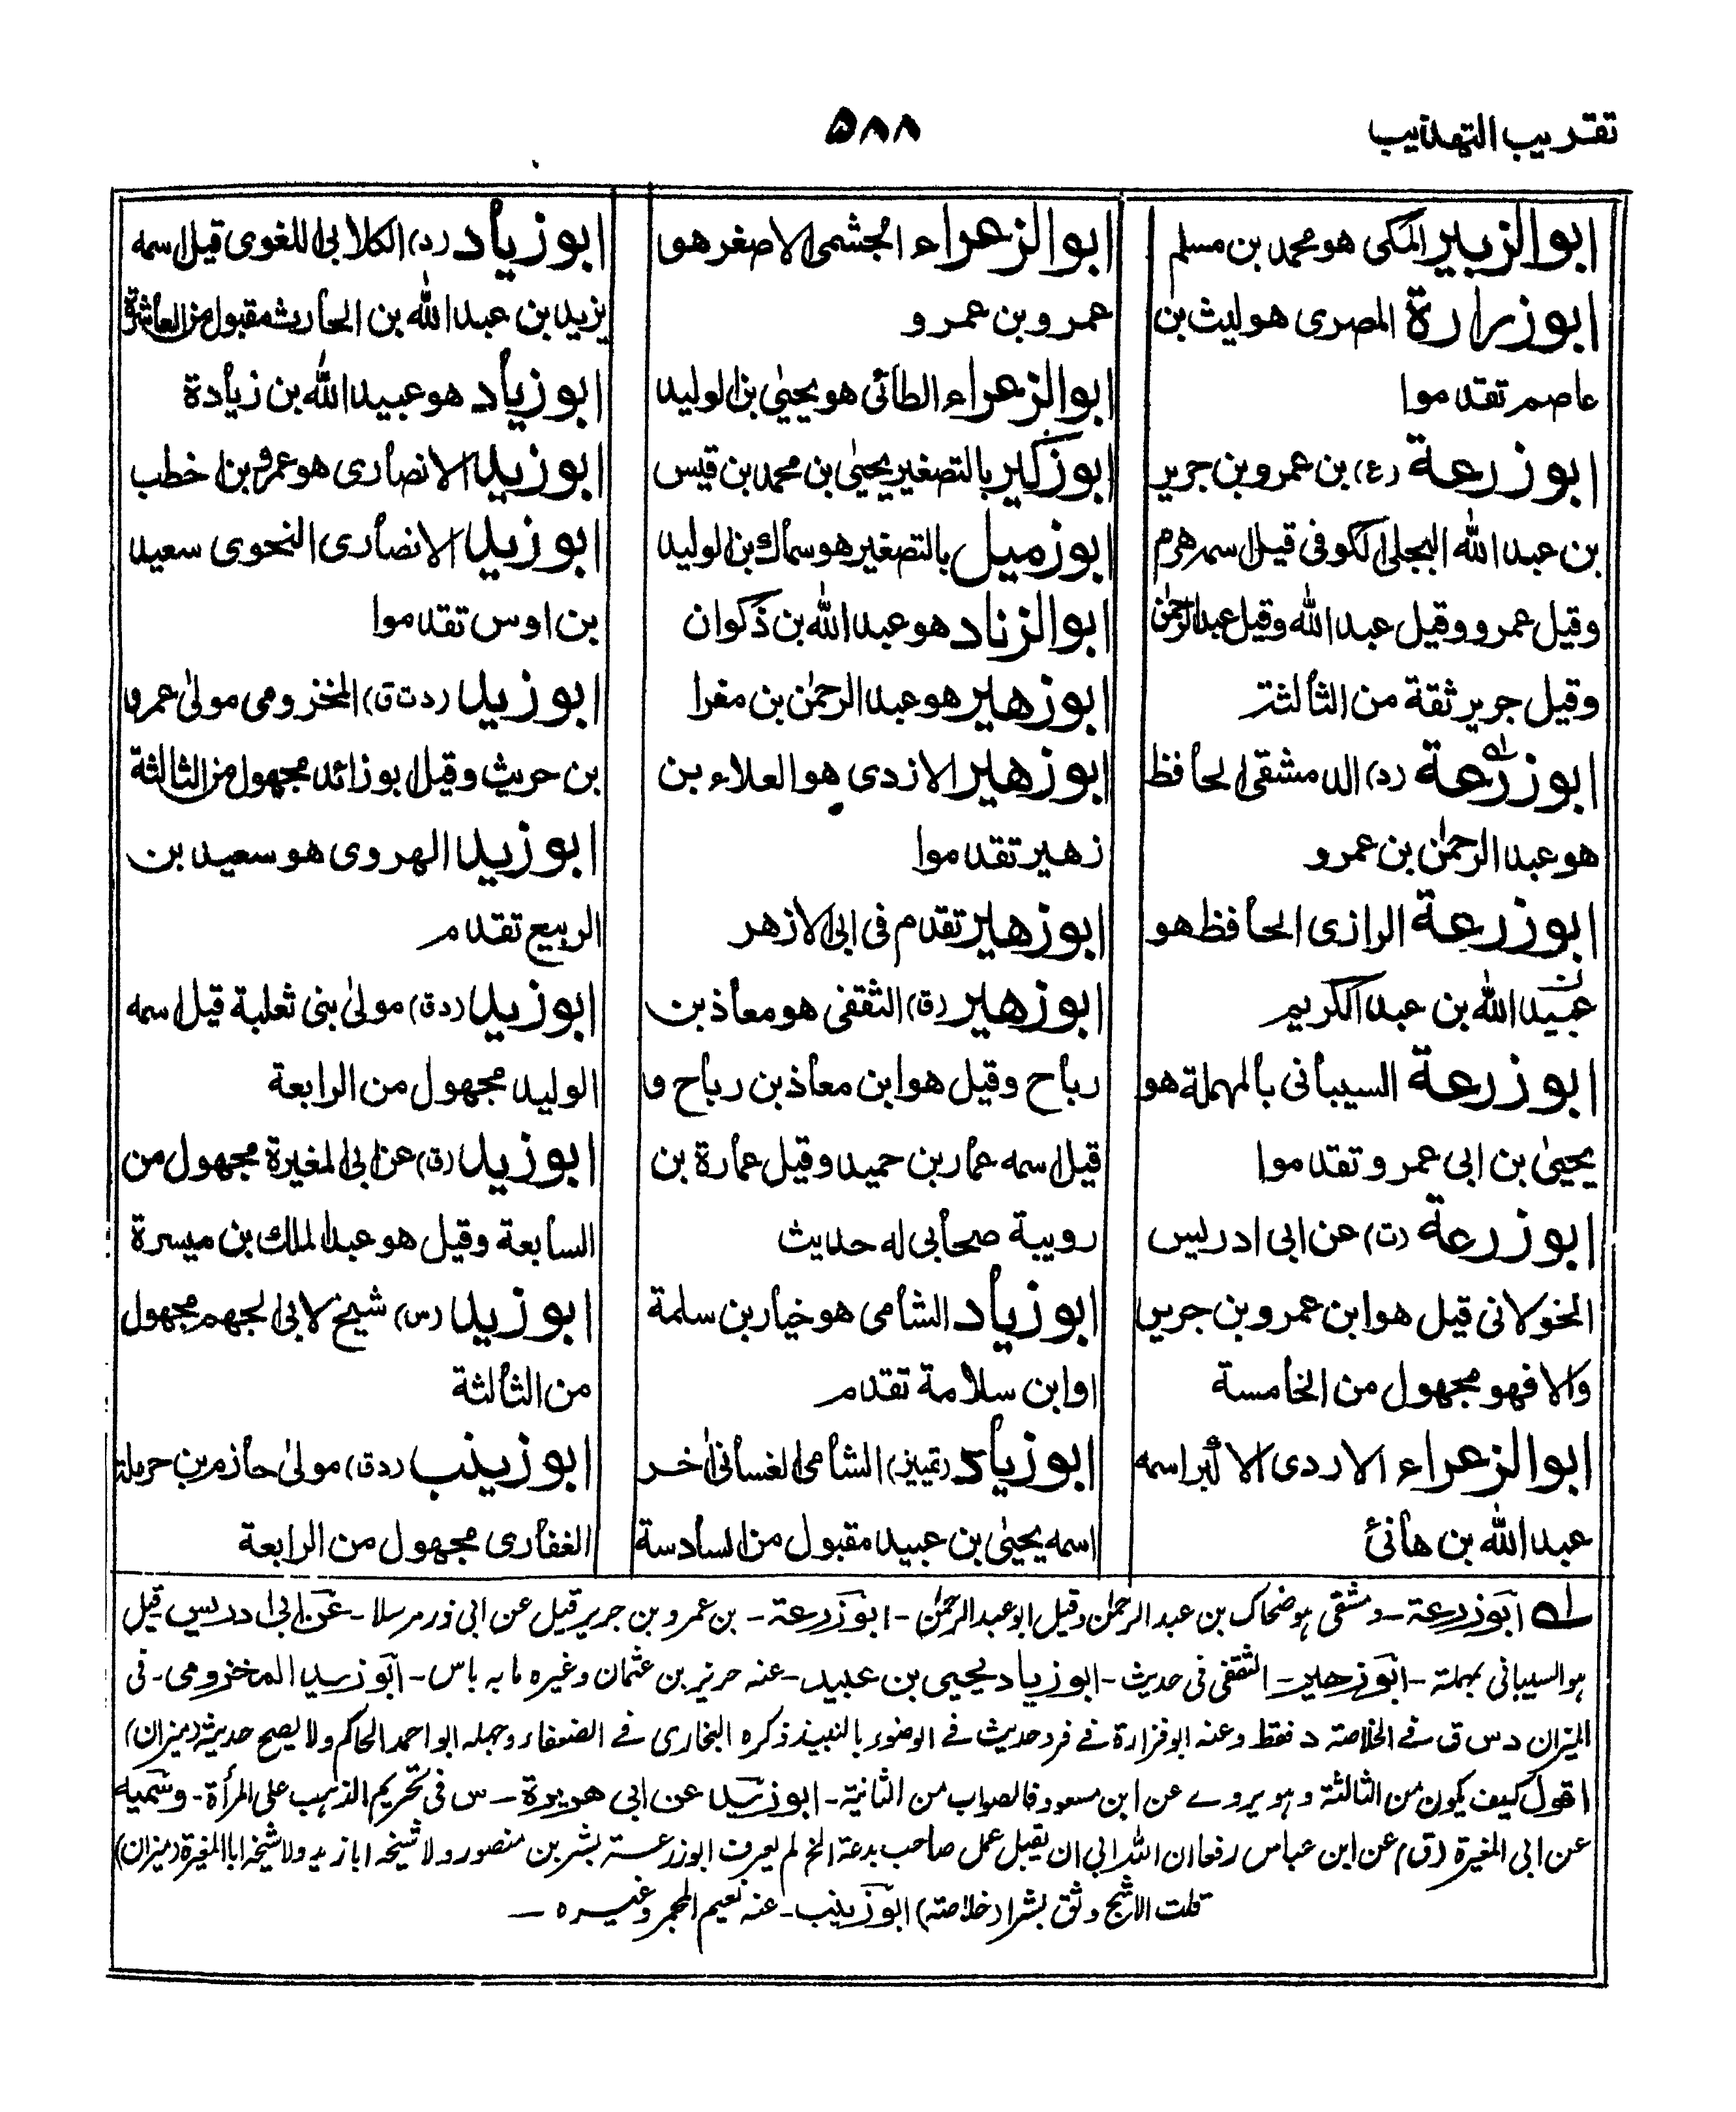 تقريب التهذيب
۵۸۸
ابو الزبير المكى هو محمد بن مسلم
ابو زرارة المصرى هو ليث بن
عاصم تقدموا
ابو زرعة (ع) بن عمرو بن جرير
بن عبد الله البجلى الكوفى قيل اسمه هرم
وقيل عمرو وقيل عبد الله وقيل عبد الرحمٰن
وقيل جرير ثقة من الثالثة
ابو زرعة (د) الدمشقى الحافظ
هو عبد الرحمٰن بن عمرو
ابو زرعة الرازى الحافظ هو
عبيد الله بن عبد الكريم
ابو زرعة السيبانى بالمهملة هو
يحيىٰ بن ابى عمرو تقدموا
ابو زرعة (ت) عن ابى ادريس
الخولانى قيل هو ابن عمرو بن جرير
والا فهو مجهول من الخامسة
ابو الزعراء الازدى الاكبر اسمه
عبد الله بن هانئ
ابو الزعراء الجشمى الاصغر هو
عمرو بن عمرو
ابو الزعراء الطائى هو يحيىٰ بن الوليد
ابو زكير بالتصغير يحيىٰ بن محمد بن قيس
ابو زميل بالتصغير هو سماك بن الوليد
ابو الزناد هو عبد الله بن ذكوان
ابو زهير هو عبد الرحمٰن بن مغرا
ابو زهير الازدى هو العلاء بن
زهير تقدموا
ابو زهير تقدم فى ابى الازهر
ابو زهير (ق) الثقفى هو معاذ بن
رباح وقيل هو ابن معاذ بن رباح و
قيل اسمه عمار بن حميد وقيل عمارة بن
رويبة صحابى له حديث
ابو زياد الشامى هو خيار بن سلمة
او ابن سلامة تقدم
ابو زياد (تمييز) الشامى الغسانى اٰخر
اسمه يحيىٰ بن عبيد مقبول من السادسة
ابو زياد (د) الكلابى اللغوى قيل اسمه
يزيد بن عبد الله بن الحارث مقبول من العاشرة
ابو زياد هو عبيد الله بن زيادة
ابو زيد الانصارى هو عمرو بن اخطب
ابو زيد الانصارى النحوى سعيد
بن اوس تقدموا
ابو زيد (د ت ق) المخزومى مولىٰ عمرو
بن حريث وقيل ابو زائد مجهول من الثالثة
ابو زيد الهروى هو سعيد بن
الربيع تقدم
ابو زيد (د ق) مولىٰ بنى ثعلبة قيل اسمه
الوليد مجهول من الرابعة
ابو زيد (ق) عن ابى المغيرة مجهول من
السابعة وقيل هو عبد الملك بن ميسرة
ابو زيد (س) شيخ لابى الجهم مجهول
من الثالثة
ابو زينب (د ق) مولىٰ حازم بن حرملة
الغفارى مجهول من الرابعة
له ابو زرعة ـ دمشقى ہو ضحاك بن عبد الرحمٰن وقيل ابو عبد الرحمٰن ـ ابو زرعة ـ بن عمرو بن جرير قيل عن ابى ذر مرسلا ـ عن ابى ادريس قيل
ہو السيبانى بمهملة ـ ابو زهير ـ الثقفى فى حديث ـ ابو زياد يحيى بن عبيد ـ عنه حريز بن عثمان وغيره ما به باس ـ ابو زيد المخزومى ـ فى
الميزان د س ق فے الخلاصة د فقط وعنه ابو فزارة فے فرد حديث فے الوضوء بالنبيذ ذكره البخارى فے الضعفاء وجهله ابو احمد الحاكم ولا يصح حديثه (ميزان)
اقول كيف يكون من الثالثة وہو يروے عن ابن مسعود فالصواب من الثانية ـ ابو زيد عن ابى هريرة ـ س فى تحريم الذہب على المرأة ـ وسميه
عن ابى المغيرة (ق) م عن ابن عباس رفعه ان الله ابى ان يقبل عمل صاحب بدعة الخ لم يعرف ابو زرعة بشر بن منصور ولا شيخه ابا زيد ولا شيخه ابا المغيرة (ميزان)
قلت الاشج وثق بشرا (خلاصة) ابو زينب ـ عنه نعيم المجمر وغيره ـ